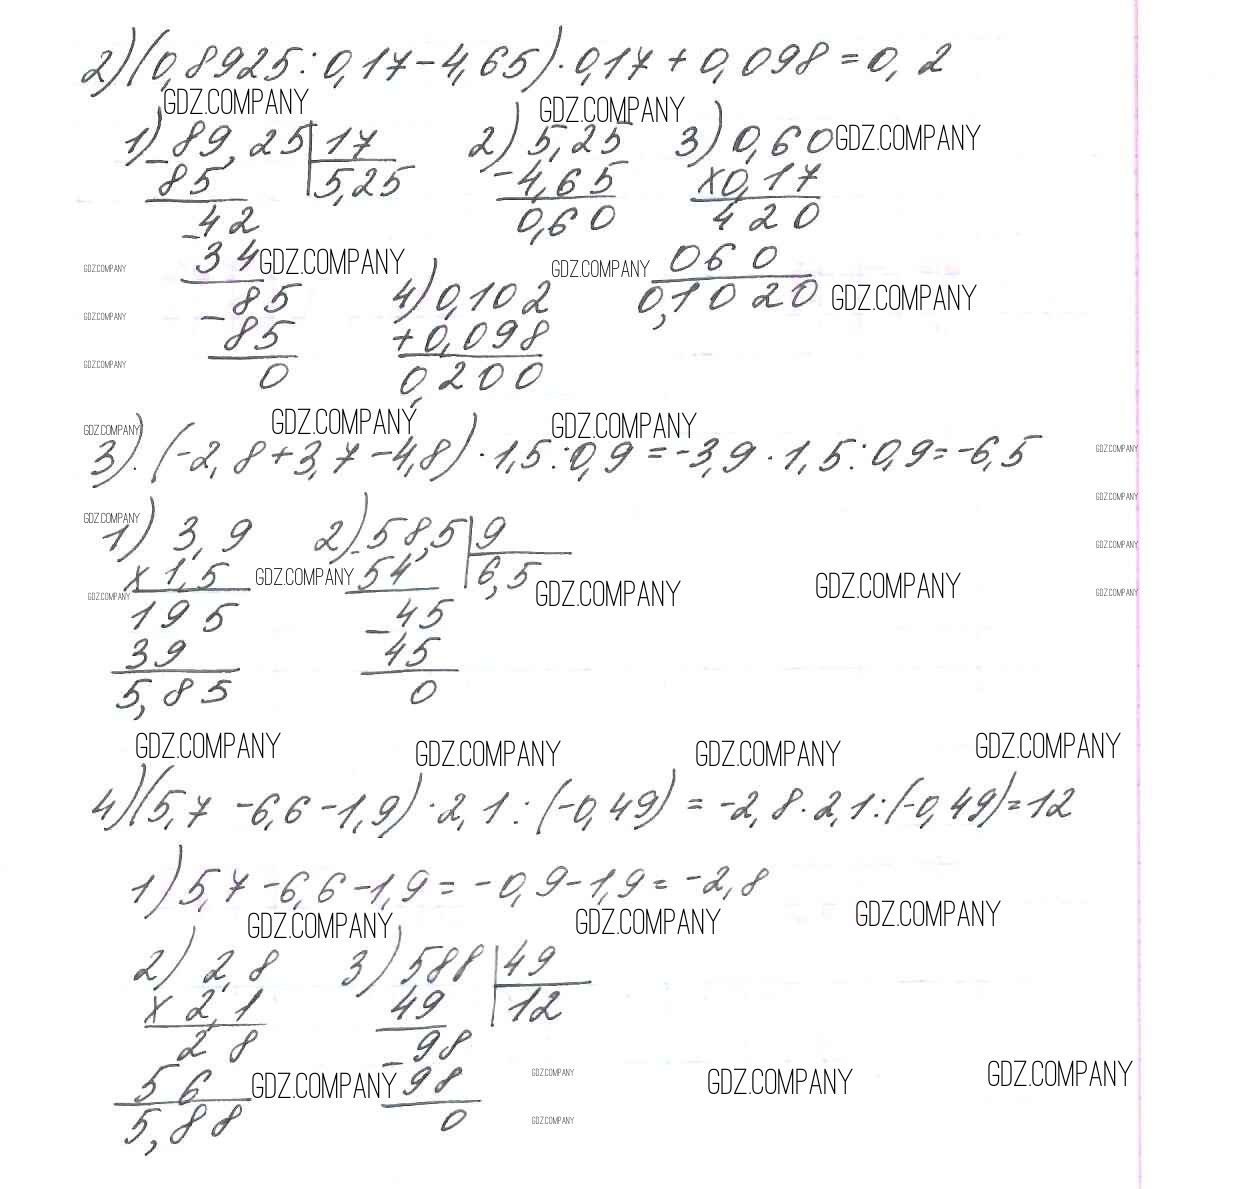 2) (0,8925 : 0,17 - 4,65) · 0,17 + 0,098 = 0,2
GDZ.COMPANY GDZ.COMPANY
1) 89,25 | 17 2) 5,25 3) 0,60 GDZ.COMPANY
- 85 5,25 - 4,65 x 0,17
- 42 0,60 420
34 GDZ.COMPANY GDZ.COMPANY 060
GDZ.COMPANY
- 85 4) 0,102 0,1020 GDZ.COMPANY
GDZ.COMPANY
85 + 0,098
GDZ.COMPANY
0 0,200
GDZ.COMPANY GDZ.COMPANY
GDZ.COMPANY
3). (-2,8 + 3,7 - 4,8) · 1,5 : 0,9 = -3,9 · 1,5 : 0,9 = -6,5
GDZ.COMPANY
GDZ.COMPANY
GDZ.COMPANY
1) 3,9 2) - 58,5 | 9
GDZ.COMPANY
x 1,5 GDZ.COMPANY 54 6,5 GDZ.COMPANY GDZ.COMPANY
GDZ.COMPANY GDZ.COMPANY
195 - 45
39 45
5,85 0
GDZ.COMPANY GDZ.COMPANY GDZ.COMPANY GDZ.COMPANY
4) (5,7 - 6,6 - 1,9) · 2,1 : (-0,49) = -2,8 · 2,1 : (-0,49) = 12
1) 5,7 - 6,6 - 1,9 = -0,9 - 1,9 = -2,8
GDZ.COMPANY GDZ.COMPANY GDZ.COMPANY
2) 2,8 3) 588 | 49
x 2,1 49 12
28 - 98
56 GDZ.COMPANY 98 GDZ.COMPANY GDZ.COMPANY GDZ.COMPANY
5,88 0 GDZ.COMPANY